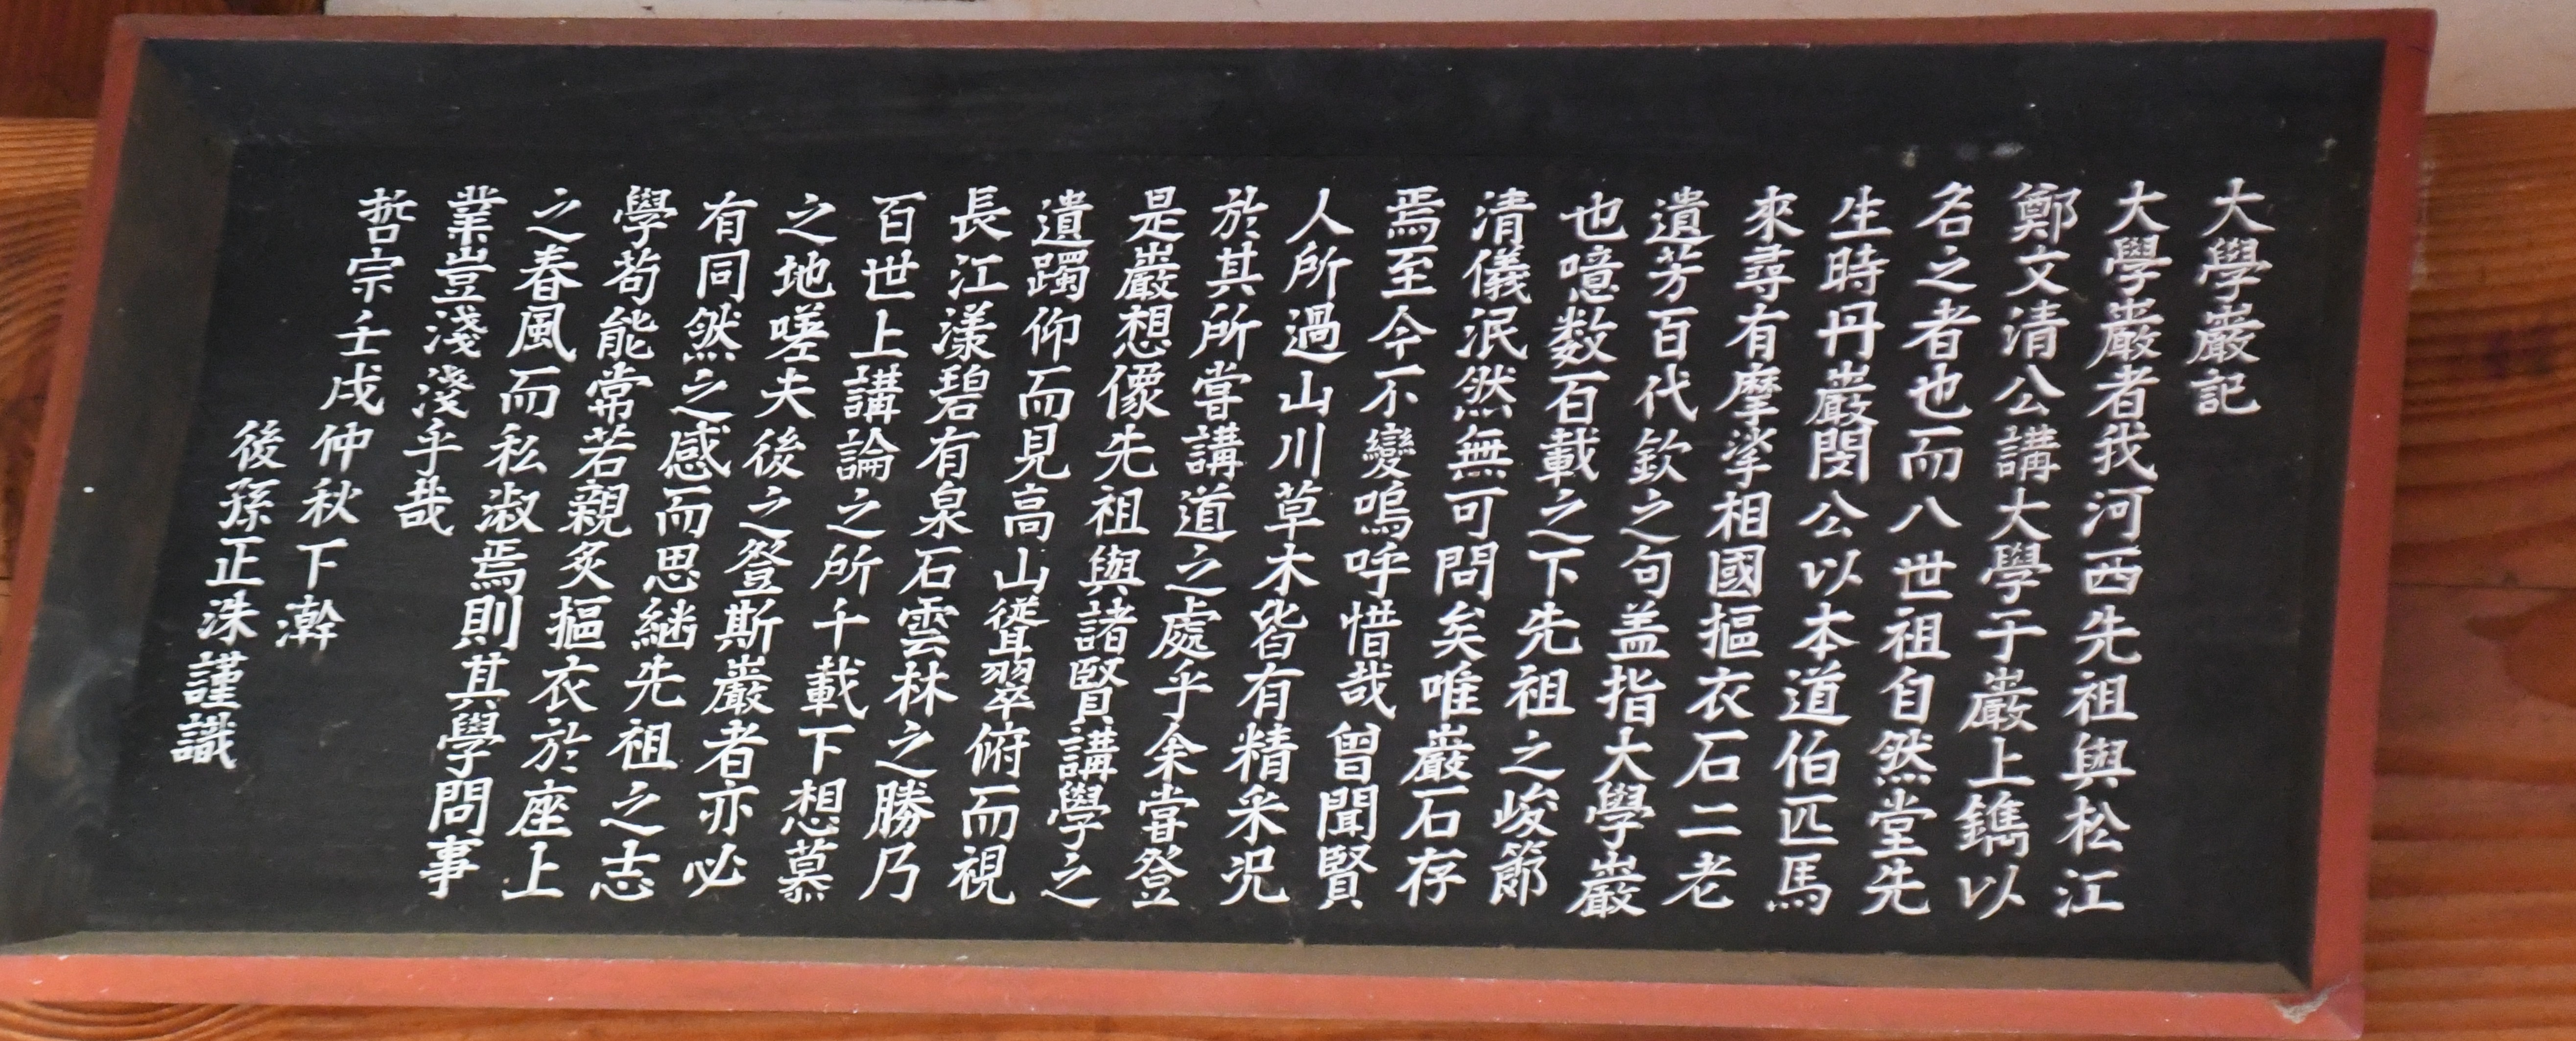 大學巖記
大學巖者我河西先祖與松江
鄭文清公講大學于巖上鐫以
名之者也而八世祖自然堂先
生時丹巖閔公以本道伯匹馬
來尋有摩挲相國摳衣石二老
遺芳百代欽之句盖指大學巖
也噫数百載之下先祖之峻節
清儀泯然無可問矣唯巖石存
焉至今不變嗚呼惜哉曾聞賢
人所過山川草木皆有精采况
於其所嘗講道之處乎余嘗登
是巖想像先祖與諸賢講學之
遺躅仰而見高山聳翠俯而視
長江漾碧有泉石雲林之勝乃
百世上講論之所千載下想慕
之地嗟夫後之登斯巖者亦必
有同然之感而思継先祖之志
學苟能常若親炙摳衣於座上
之春風而私淑焉則其學問事
業豈淺淺乎哉
哲宗壬戌仲秋下澣
後孫正洙謹識